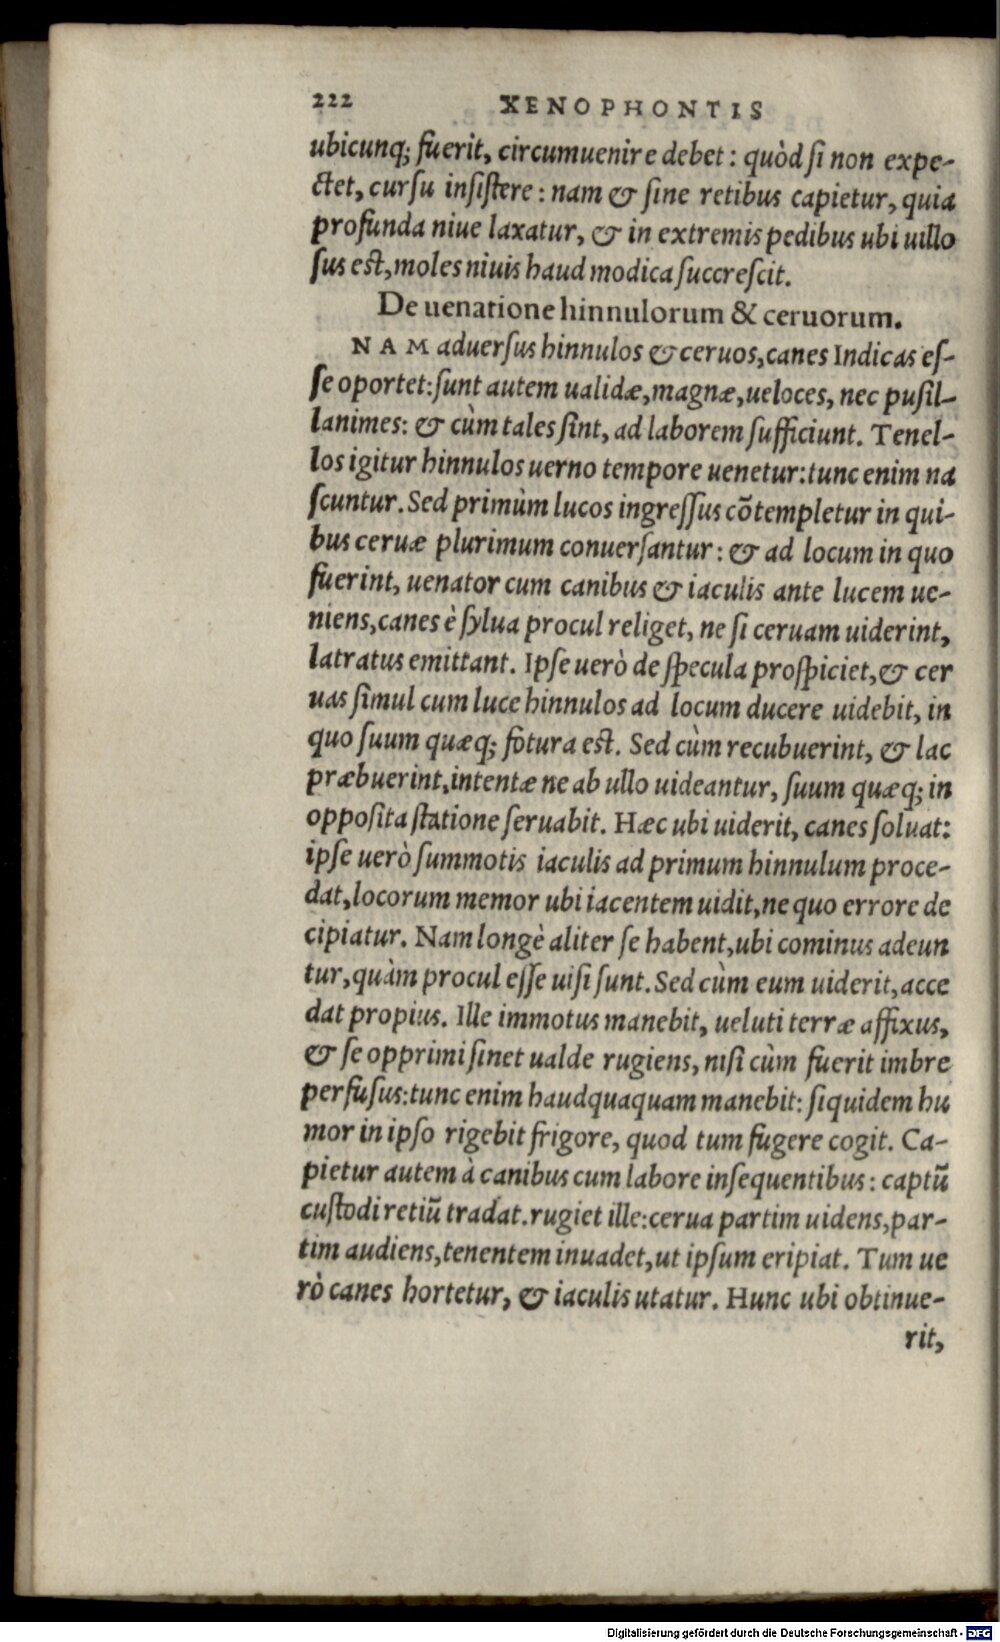 222 XENOPHONTIS
ubicunq; fuerit, circumuenire debet: quòd si non expe-
ctet, cursu insistere: nam & sine retibus capietur, quia
profunda niue laxatur, & in extremis pedibus ubi uillo
sus est, moles niuis haud modica succrescit.
De uenatione hinnulorum & ceruorum.
NAM aduersus hinnulos & ceruos, canes Indicas es-
se oportet: sunt autem ualidæ, magnæ, ueloces, nec pusil-
lanimes: & cùm tales sint, ad laborem sufficiunt. Tenel-
los igitur hinnulos uerno tempore uenetur: tunc enim na
scuntur. Sed primùm lucos ingressus cõtempletur in qui-
bus ceruæ plurimum conuersantur: & ad locum in quo
fuerint, uenator cum canibus & iaculis ante lucem ue-
niens, canes è sylua procul religet, ne si ceruam uiderint,
latratus emittant. Ipse uerò de specula prospiciet, & cer
uas simul cum luce hinnulos ad locum ducere uidebit, in
quo suum quæq; fotura est. Sed cùm recubuerint, & lac
præbuerint, intentæ ne ab ullo uideantur, suum quæq; in
opposita statione seruabit. Hæc ubi uiderit, canes soluat:
ipse uerò summotis iaculis ad primum hinnulum proce-
dat, locorum memor ubi iacentem uidit, ne quo errore de
cipiatur. Nam longè aliter se habent, ubi cominus adeun
tur, quàm procul esse uisi sunt. Sed cùm eum uiderit, acce
dat propius. Ille immotus manebit, ueluti terræ affixus,
& se opprimi sinet ualde rugiens, nisi cùm fuerit imbre
perfusus: tunc enim haudquaquam manebit: siquidem hu
mor in ipso rigebit frigore, quod tum fugere cogit. Ca-
pietur autem à canibus cum labore insequentibus: captũ
custodi retiũ tradat. rugiet ille: cerua partim uidens, par-
tim audiens, tenentem inuadet, ut ipsum eripiat. Tum ue
rò canes hortetur, & iaculis utatur. Hunc ubi obtinue-
rit,
Digitalisierung gefördert durch die Deutsche Forschungsgemeinschaft - DFG